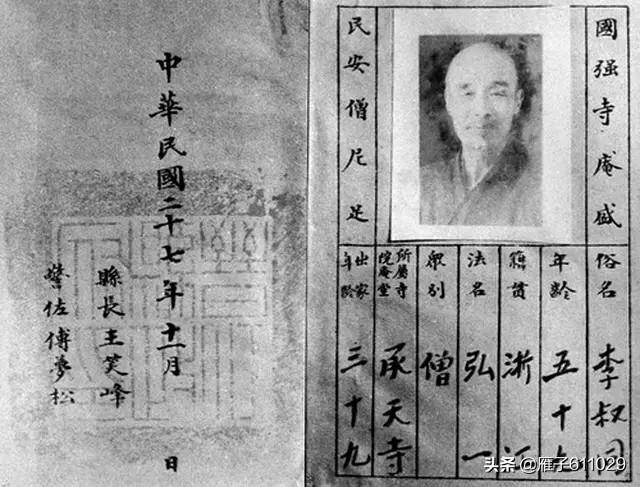 國强寺庵盛
民安僧尼足
俗名 李叔同
年齡 五十九
籍貫 浙江
法名 弘一
眾別 僧
所屬寺院庵堂 承天寺
出家年齡 三十九
中華民國二十七年十一月 日
縣長王笑峰
警佐傅夢松
头条 @雁子611029